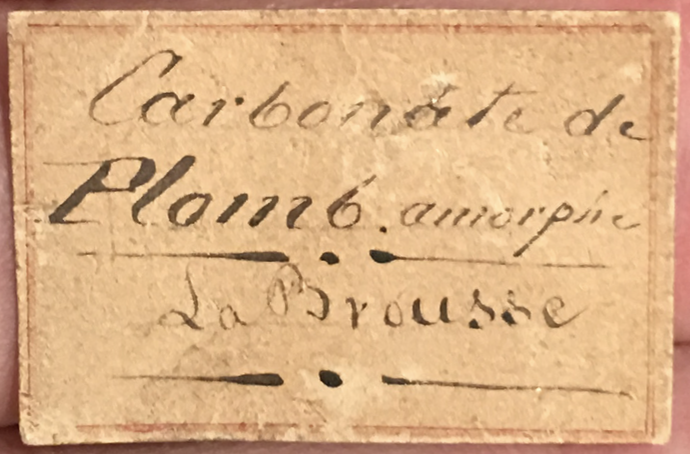 Carbonate de
Plomb. amorphe
La Brousse